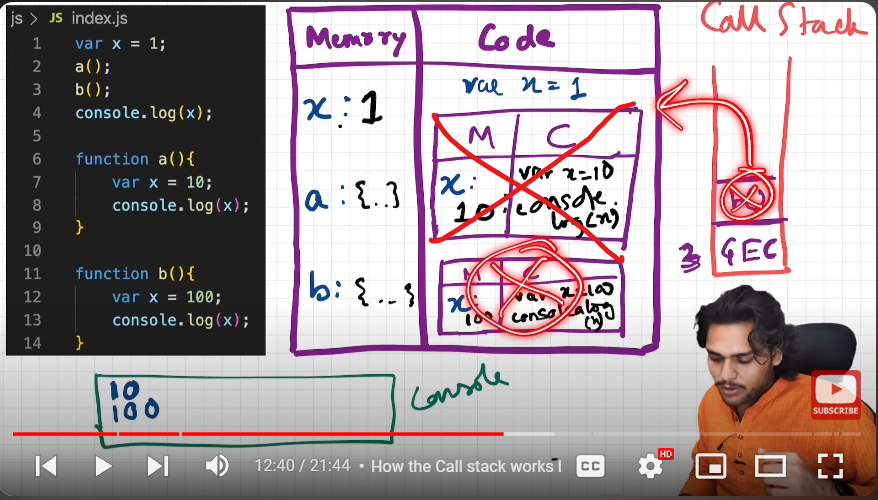 js > JS index.js
1 var x = 1;
2 a();
3 b();
4 console.log(x);
5
6 function a(){
7 var x = 10;
8 console.log(x);
9 }
10
11 function b(){
12 var x = 100;
13 console.log(x);
14 }
Memory Code
x : 1
a : {..}
b : {...}
var x = 1
M C
x: 10
var x=10
console.
log(x)
M C
x: 100
var x=100
console.log
(x)
Call Stack
GEC
10
100
Console
SUBSCRIBE
12:40 / 21:44 • How the Call stack works
CC
HD